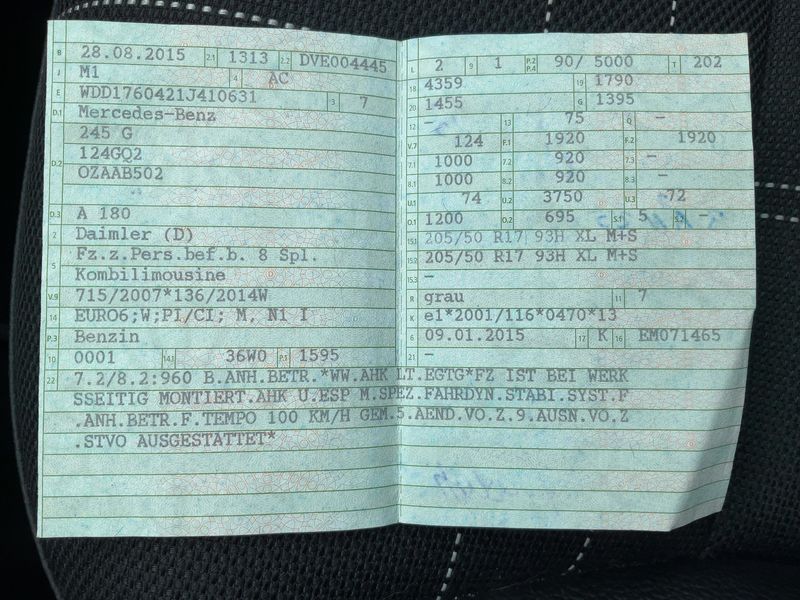 B 28.08.2015 2.1 1313 2.2 DVE004445
J M1 4 AC
E WDD1760421J410631 3 7
D.1 Mercedes-Benz
245 G
D.2 124GQ2
OZAAB502
D.3 A 180
2 Daimler (D)
5 Fz.z.Pers.bef.b. 8 Spl.
Kombilimousine
V.9 715/2007*136/2014W
14 EURO6;W;PI/CI; M, N1 I
P.3 Benzin
10 0001 14.1 36W0 P.1 1595
L 2 9 1 P.2 P.4 90/ 5000 T 202
18 4359 19 1790
20 1455 G 1395
12 - 13 75 Q -
V.7 124 F.1 1920 F.2 1920
7.1 1000 7.2 920 7.3 -
8.1 1000 8.2 920 8.3 -
U.1 74 U.2 3750 U.3 72
O.1 1200 O.2 695 S.1 5 S.2 -
15.1 205/50 R17 93H XL M+S
15.2 205/50 R17 93H XL M+S
15.3 -
R grau 11 7
K e1*2001/116*0470*13
6 09.01.2015 17 K 16 EM071465
21 -
22 7.2/8.2:960 B.ANH.BETR.*WW.AHK LT.EGTG*FZ IST BEI WERK
SSEITIG MONTIERT.AHK U.ESP M.SPEZ.FAHRDYN.STABI.SYST.F
.ANH.BETR.F.TEMPO 100 KM/H GEM.5.AEND.VO.Z.9.AUSN.VO.Z
.STVO AUSGESTATTET*